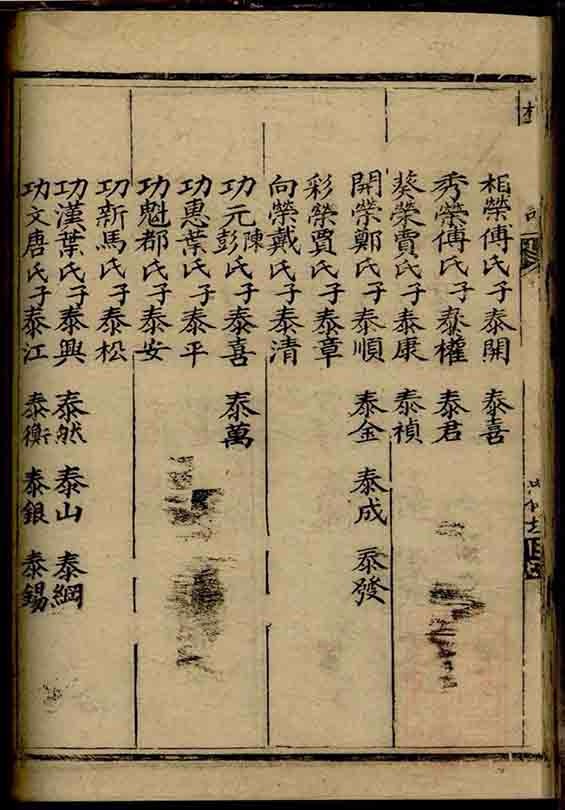 相榮傅氏子泰開 泰喜
秀榮傅氏子泰權 泰君
葵榮賈氏子泰康 泰禎
開榮鄭氏子泰順 泰金 泰成 泰發
彩榮賈氏子泰章
向榮戴氏子泰清
功元陳彭氏子泰喜 泰萬
功惠葉氏子泰平
功魁都氏子泰安
功新馬氏子泰松
功漢葉氏子泰興 泰然 泰山 泰綱
功文唐氏子泰江 泰衡 泰銀 泰錫